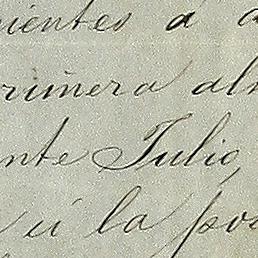 nientes a a
rimera al
nte Julio,
a la po